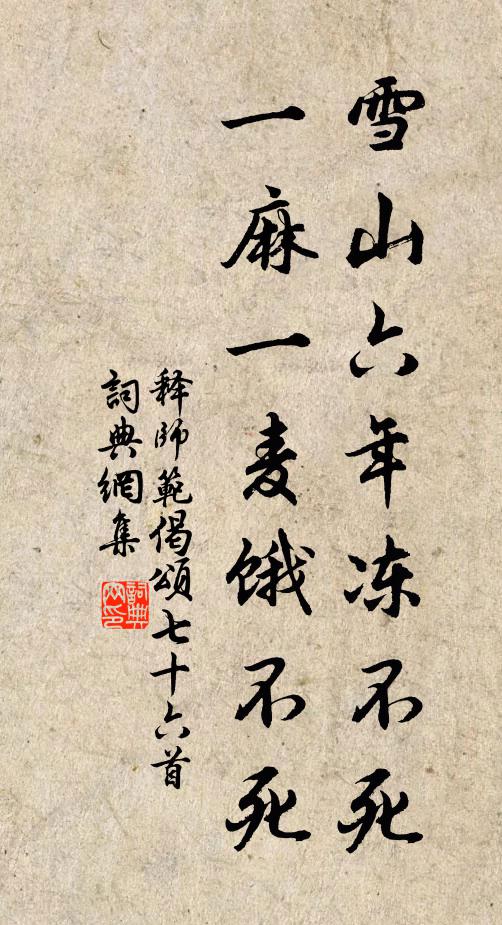 雪山六年冻不死
一麻一麦饿不死
释師範偈頌七十六首
詞典網集
詞典网印